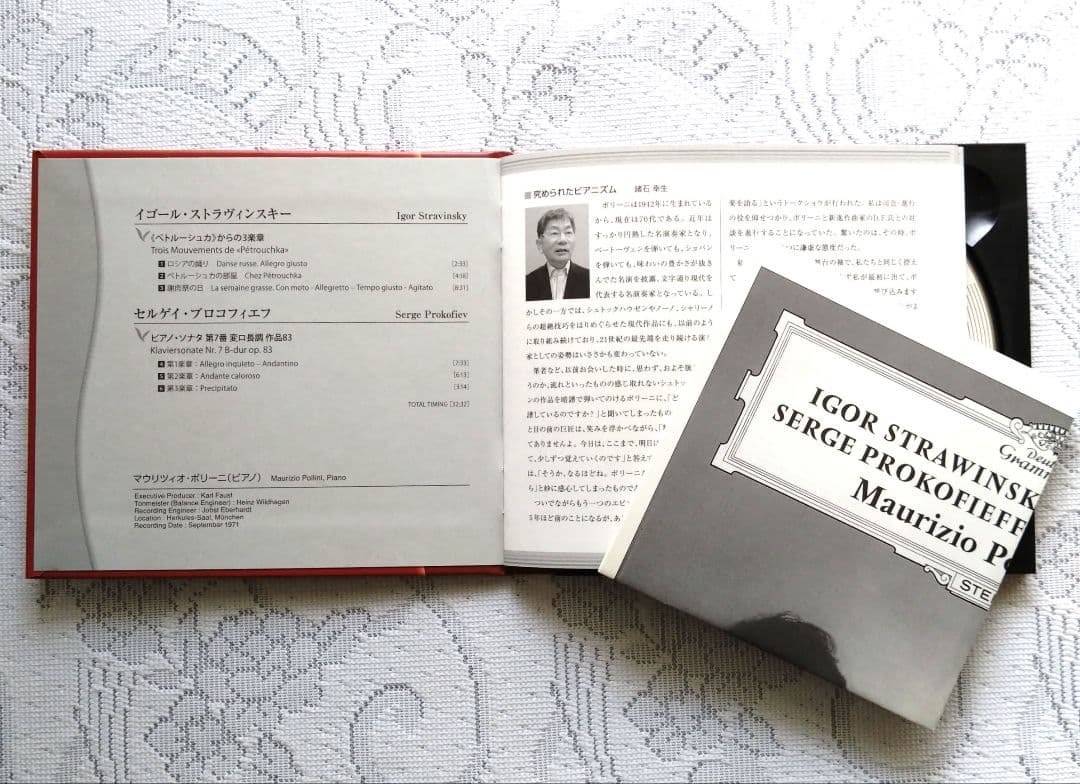 イゴール・ストラヴィンスキー Igor Stravinsky
《ペトルーシュカ》からの3楽章
Trois Mouvements de «Pétrouchka»
1 ロシアの踊り Danse russe. Allegro giusto [2:33]
2 ペトルーシュカの部屋 Chez Pétrouchka [4:18]
3 謝肉祭の日 La semaine grasse. Con moto - Allegretto – Tempo giusto - Agitato [8:31]
セルゲイ・プロコフィエフ Serge Prokofiev
ピアノ・ソナタ 第7番 変ロ長調 作品83
Klaviersonate Nr. 7 B-dur op. 83
4 第1楽章：Allegro inquieto – Andantino [7:33]
5 第2楽章：Andante caloroso [6:13]
6 第3楽章：Precipitato [3:14]
TOTAL TIMING [32:32]
マウリツィオ・ポリーニ（ピアノ） Maurizio Pollini, Piano
Executive Producer : Karl Faust
Tonmeister (Balance Engineer) : Heinz Wildhagen
Recording Engineer : Jobst Eberhardt
Location : Herkules-Saal, München
Recording Date : September 1971
■ 究められたピアニズム 諸石 幸生
ポリーニは1942年に生まれている
から、現在は70代である。近年は
すっかり円熟した名演奏家となり、
ベートーヴェンを弾いても、ショパン
を弾いても、味わいの豊かさが抜き
んでた名演を披露、文字通り現代を
代表する名演奏家となっている。し
かしその一方では、シュトックハウゼンやノーノ、シャリーノ
らの超絶技巧をはりめぐらせた現代作品にも、以前のよう
に取り組み続けており、21世紀の最先端を走り続ける演
家としての姿勢はいささかも変わっていない。
筆者など、以前お会いした時に、思わず、およそ脈
うのか、流れといったものの感じ取れないシュトッ
ンの作品を暗譜で弾いてのけるポリーニに、「ど
譜しているのですか？」と聞いてしまったもの
と目の前の巨匠は、笑みを浮かべながら、「
てありませんよ。今日は、ここまで、明日に
て、少しずつ覚えていくのです」と答えて
は、「そうか、なるほどね。ポリーニ
ら」と妙に感心してしまったもので
ついでながらもう一つのエピ
5年ほど前のことになるが、あ
楽を語る」というトークショウが行われた。私は司会・進行
の役を仰せつかり、ポリーニと新進作曲家のD.F.氏との対
談を進行することになっていた。驚いたのは、その時、ポ
リーニ つに謙虚な態度だった。
舞台の袖で、私たちと同じく控え
ず私が最初に出て、ポ
呼び込みます
IGOR STRAWINSK
SERGE PROKOFIEFF
Maurizio Po
Deu
Gram
STE